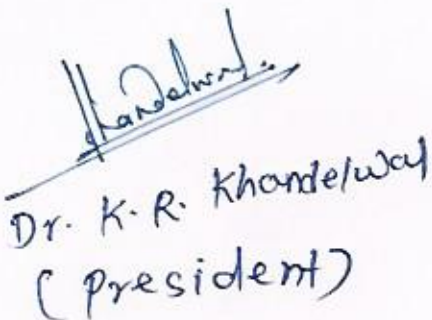 Khandelwal..
Dr. K. R. Khandelwal
(President)